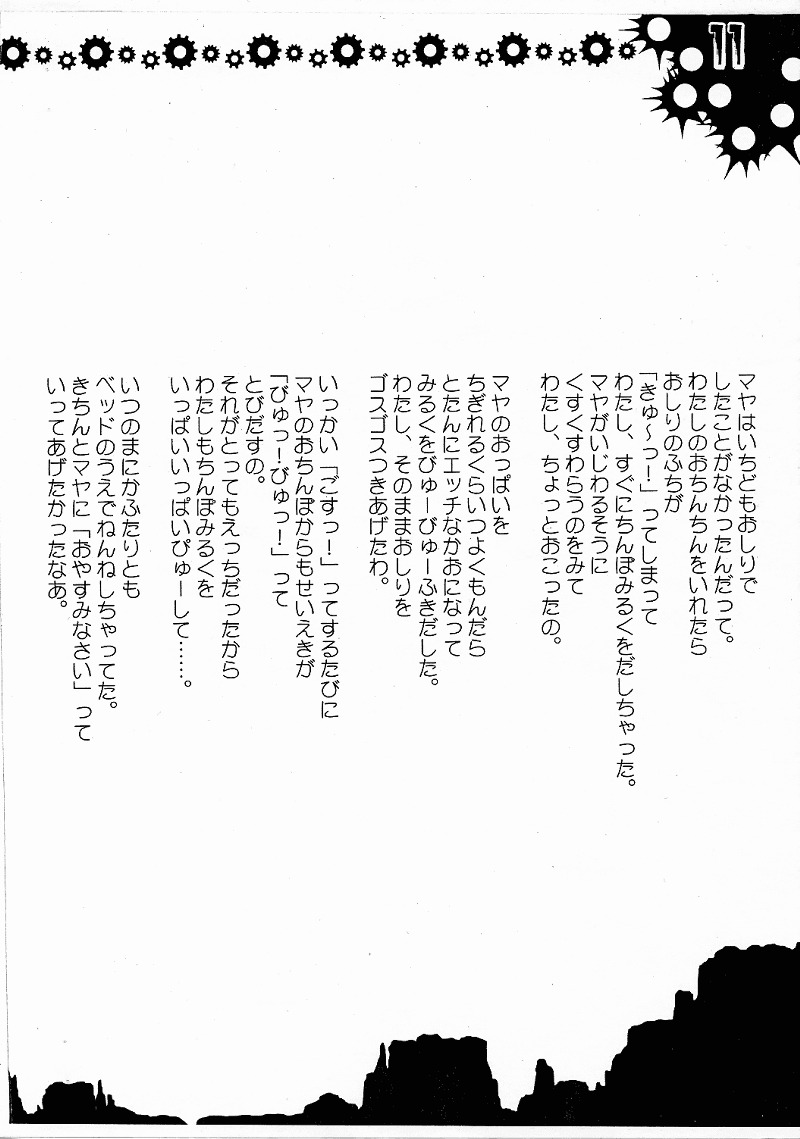 11
マヤはいちどもおしりで
したことがなかったんだって。
わたしのおちんちんをいれたら
おしりのふちが
「きゅ～っ！」ってしまって
わたし、すぐにちんぽみるくをだしちゃった。
マヤがいじわるそうに
くすくすわらうのをみて
わたし、ちょっとおこったの。
マヤのおっぱいを
ちぎれるくらいつよくもんだら
とたんにエッチなかおになって
みるくをびゅーびゅーふきだした。
わたし、そのままおしりを
ゴスゴスつきあげたわ。
いっかい「ごすっ！」ってするたびに
マヤのおちんぽからもせいえきが
「びゅっ！びゅっ！」って
とびだすの。
それがとってもえっちだったから
わたしもちんぽみるくを
いっぱいいっぱいぴゅーして……。
いつのまにかふたりとも
ベッドのうえでねんねしちゃってた。
きちんとマヤに「おやすみなさい」って
いってあげたかったなあ。